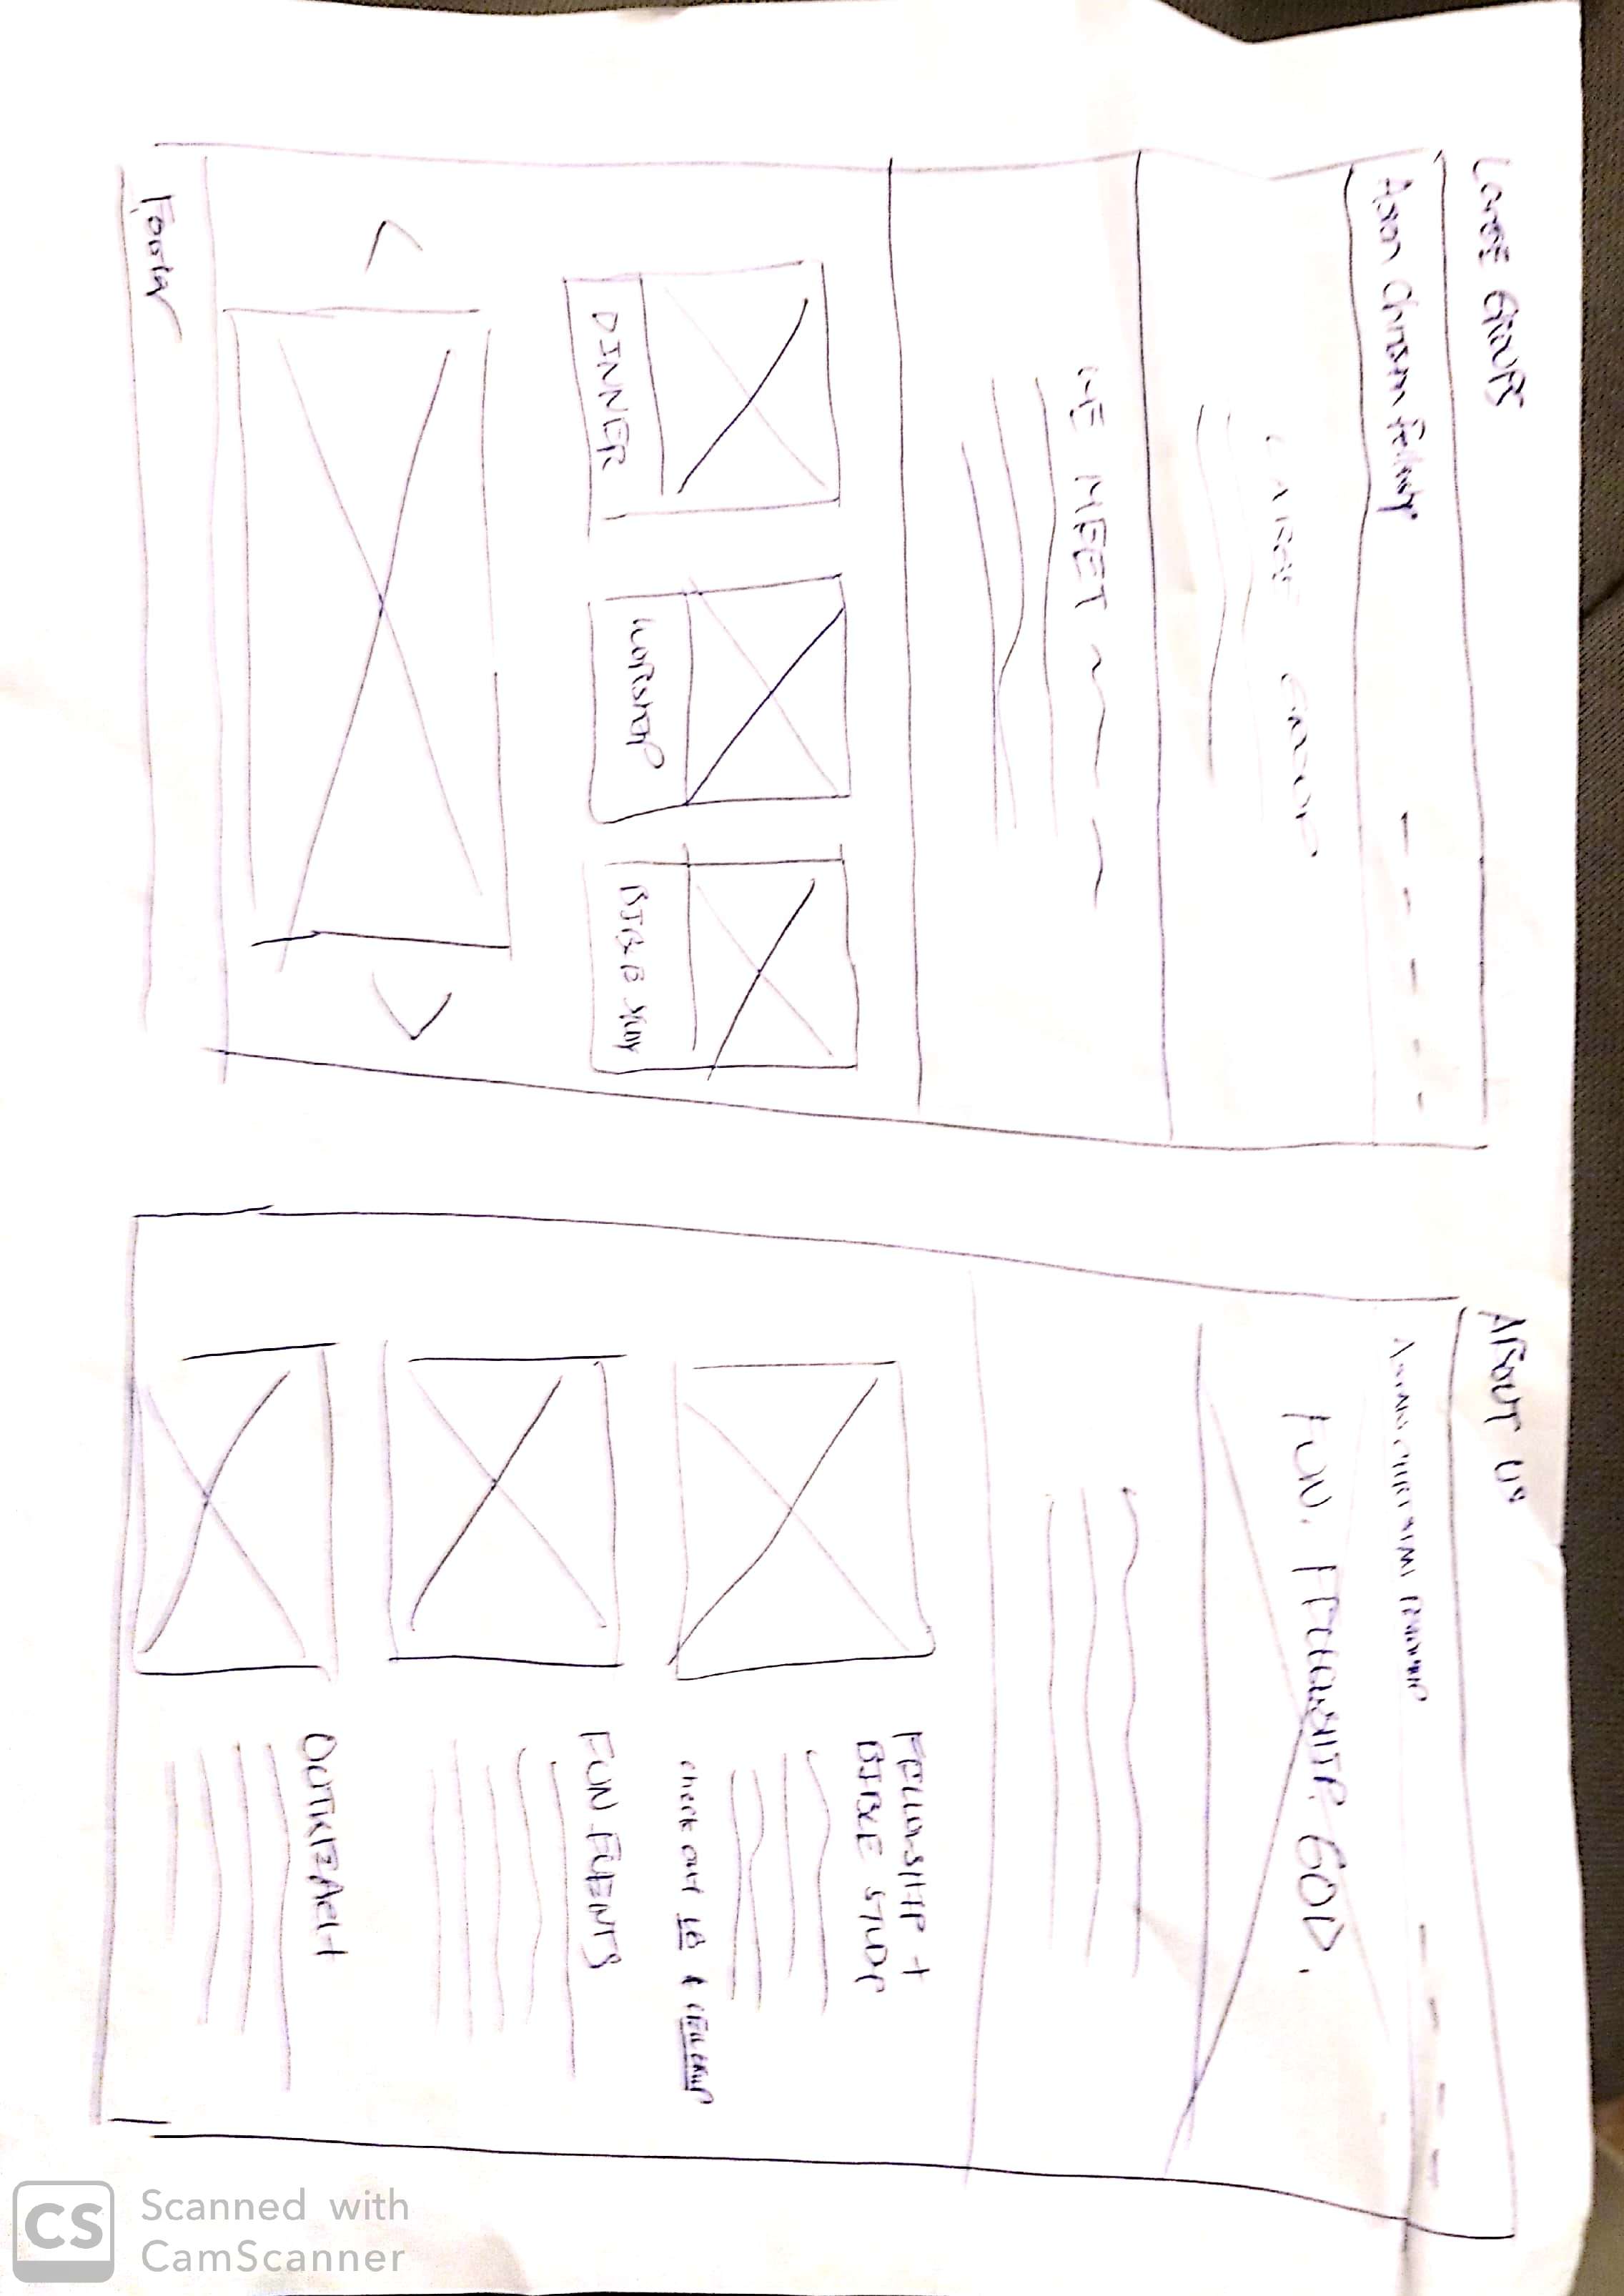 LARGE GROUPS
Asian Christian Fellowship
LARGE GROUP
WE MEET
DINNER
WORSHIP
BIBLE STUDY
Footer
ABOUT US
ASIAN CHRISTIAN FELLOWSHIP
FUN. FELLOWSHIP. GOD.
FELLOWSHIP +
BIBLE STUDY
check out LG &
FUN EVENTS
OUTREACH
CS
Scanned with
CamScanner